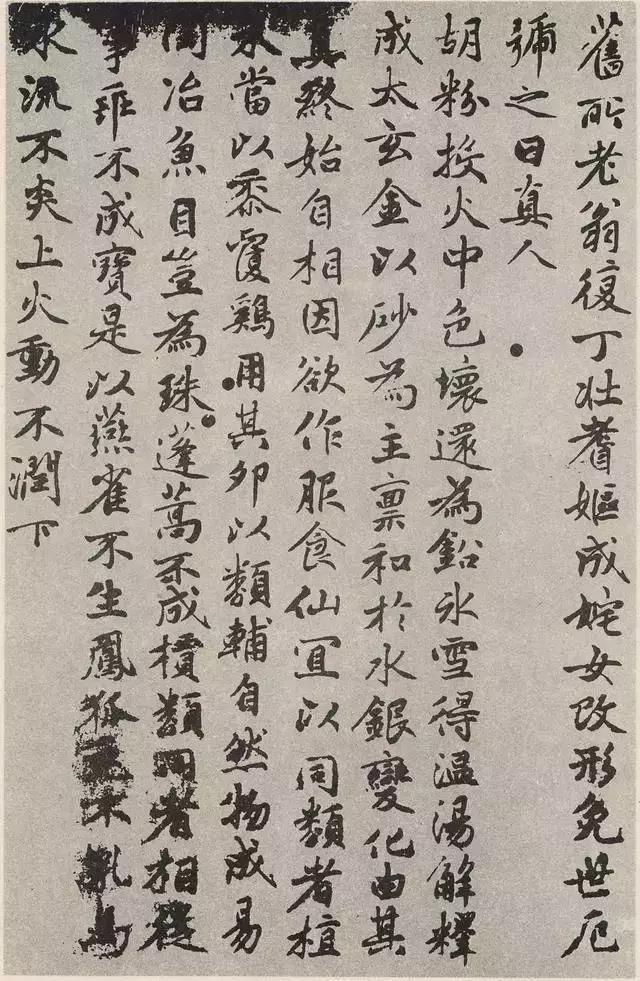 舊所老翁復丁壯耆嫗成姹女改形免世厄
號之曰真人
胡粉投火中色壞還為鉛氷雪得温湯解釋
成太玄金以砂為主稟和於水銀變化由其
真終始自相因欲作服食仙冝以同類者植
禾當以黍覆鷄用其卵以類輔自然物成易
陶冶魚目豈為珠蓬蒿不成檟類同者相從
事乖不成寶是以燕雀不生鳳狐兎不乳馬
水流不炎上火動不潤下